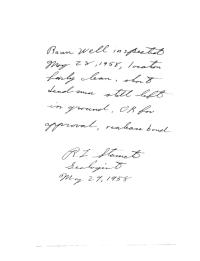 Baun Well inspected
May 28, 1958, location
fairly clean, short
dead men still left
in ground, OK for
approval, release bond
R L Stamets
Geologist
May 29, 1958